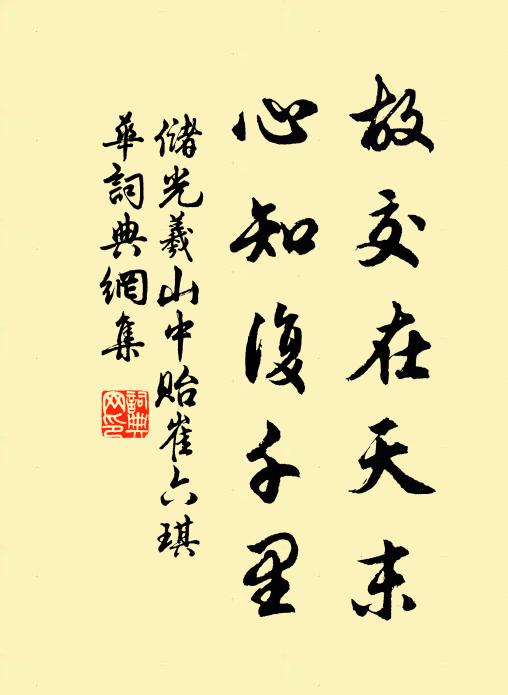 故交在天末
心知復千里
儲光羲山中貽崔六琪
華詞典網集
詞典網印